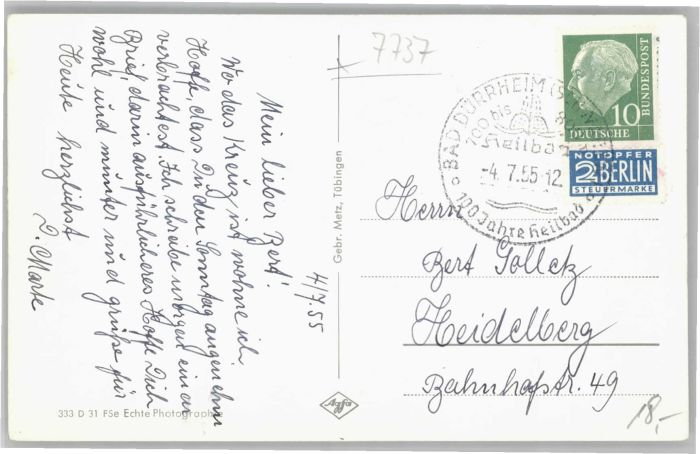 7737
4/7.55
Mein lieber Bert!
Wo das Kreuz ist wohne ich.
Hoffe, dass Du den Sonntag angenehm
verbrachtest. Ich schreibe morgen einen
Brief, darin ausführlicheres. Hoffe Dich
wohl und munter und grüße für
Heute herzlichst
D. Marte
333 D 31 FSe Echte Photographie
Gebr. Metz, Tübingen
Agfa
BAD DÜRRHEIM
700 bis 80
Heilbad
-4.7.55-12
100 Jahre Heilbad
10
DEUTSCHE
BUNDESPOST
NOTOPFER
2 BERLIN
STEUERMARKE
Herrn
Bert Golletz
Heidelberg
Bahnhofstr. 49
18,-